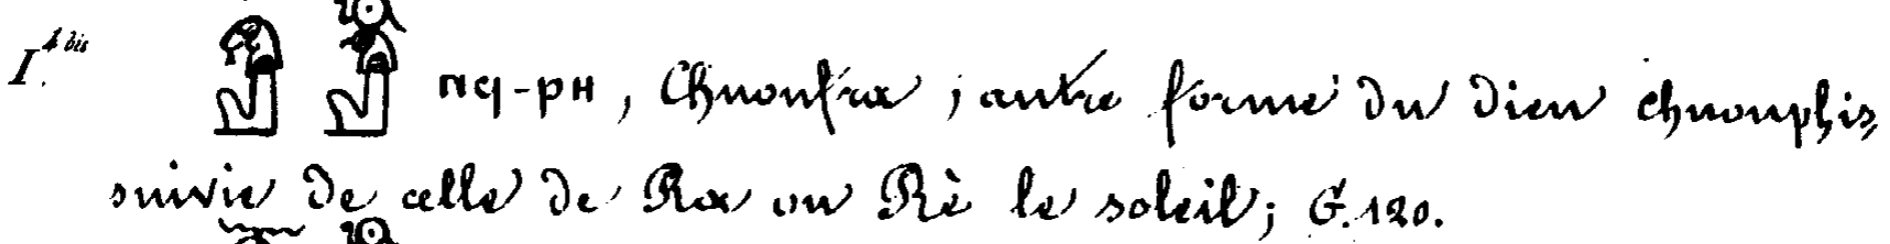 I. 4 bis ⲛϥ-ⲣⲏ, Chnoufra; autre forme du dieu chnouphis,
suivie de celle de Ra ou Rè le soleil; G. 120.